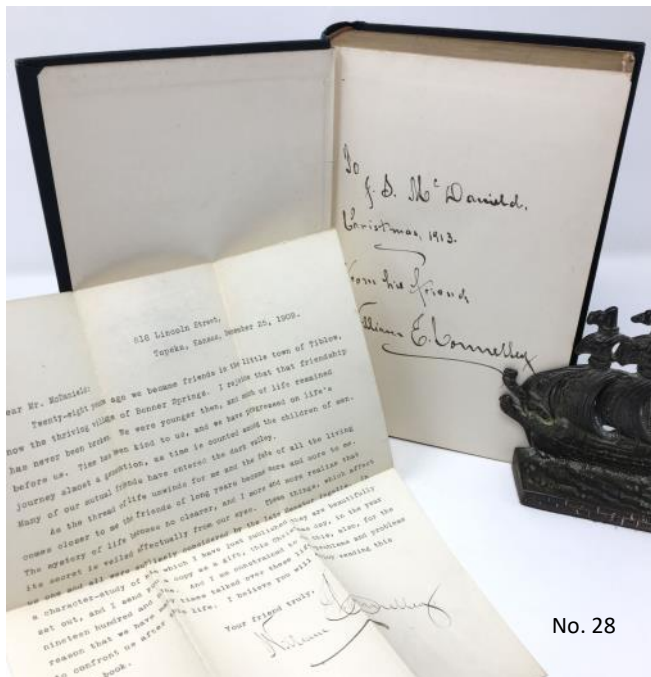 To
J. D. McDanield.
Christmas, 1913.
From his friend
William E. Connelley
616 Lincoln Street,
Topeka, Kansas, December 25, 1909.
Dear Mr. McDanield:
Twenty-eight years ago we became friends in the little town of Tiblow,
now the thriving village of Bonner Springs. I rejoice that that friendship
has never been broken. We were younger then, and most of life remained
before us. Time has been kind to us, and we have progressed on life's
journey almost a generation, as time is counted among the children of men.
Many of our mutual friends have entered the dark valley.
As the thread of life unwinds for me and the fate of all the living
comes closer to me the friends of long years become more and more to me.
The mystery of life becomes no clearer, and I more and more realize that
its secret is veiled effectually from our eyes. These things, which affect
us one and all were considered by the late Senator Ingalls. In
a character-study of him which I have just published they are beautifully
set out, and I send you a copy as a gift, this Christmas day, in the year
nineteen hundred and nine. And I am constrained to this, also, for the
reason that we have many times talked over these problems and problems
to confront us after this life. I believe you will enjoy reading this
book.
Your friend truly,
William E. Connelley
No. 28